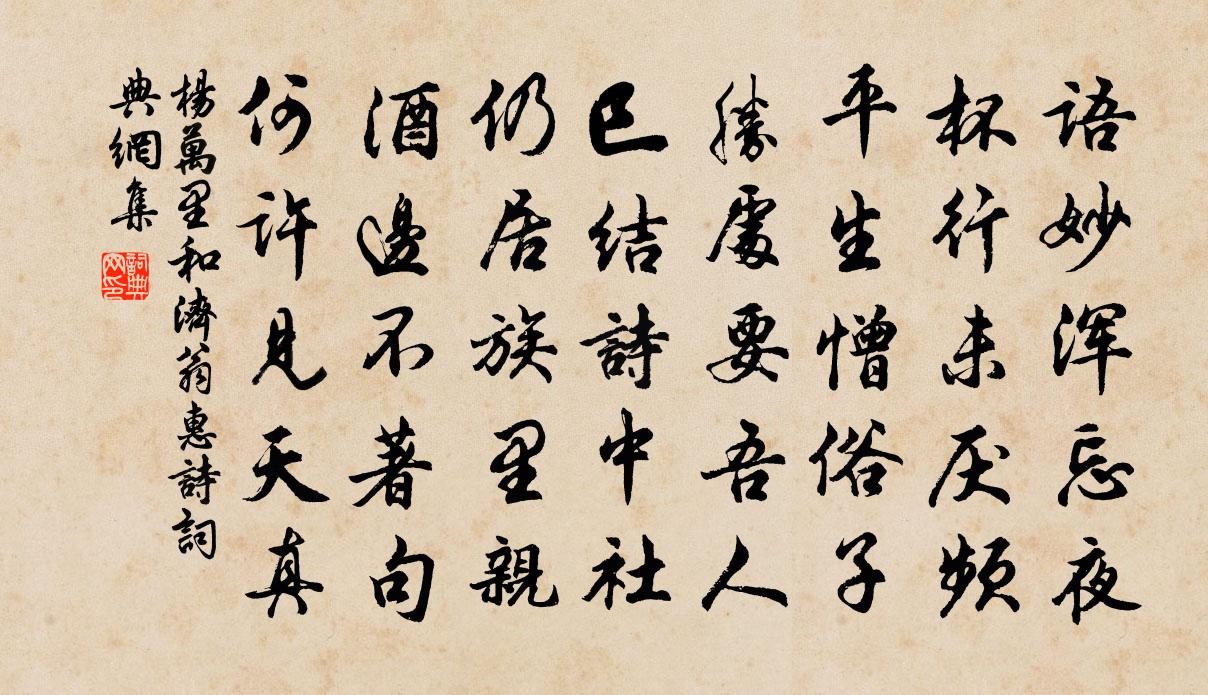 语妙浑忘夜
杯行未厌频
平生憎俗子
勝處要吾人
已结詩中社
仍居族里親
酒邊不著句
何許見天真
楊萬里和濟翁惠詩詞
典網集
詞典
网印